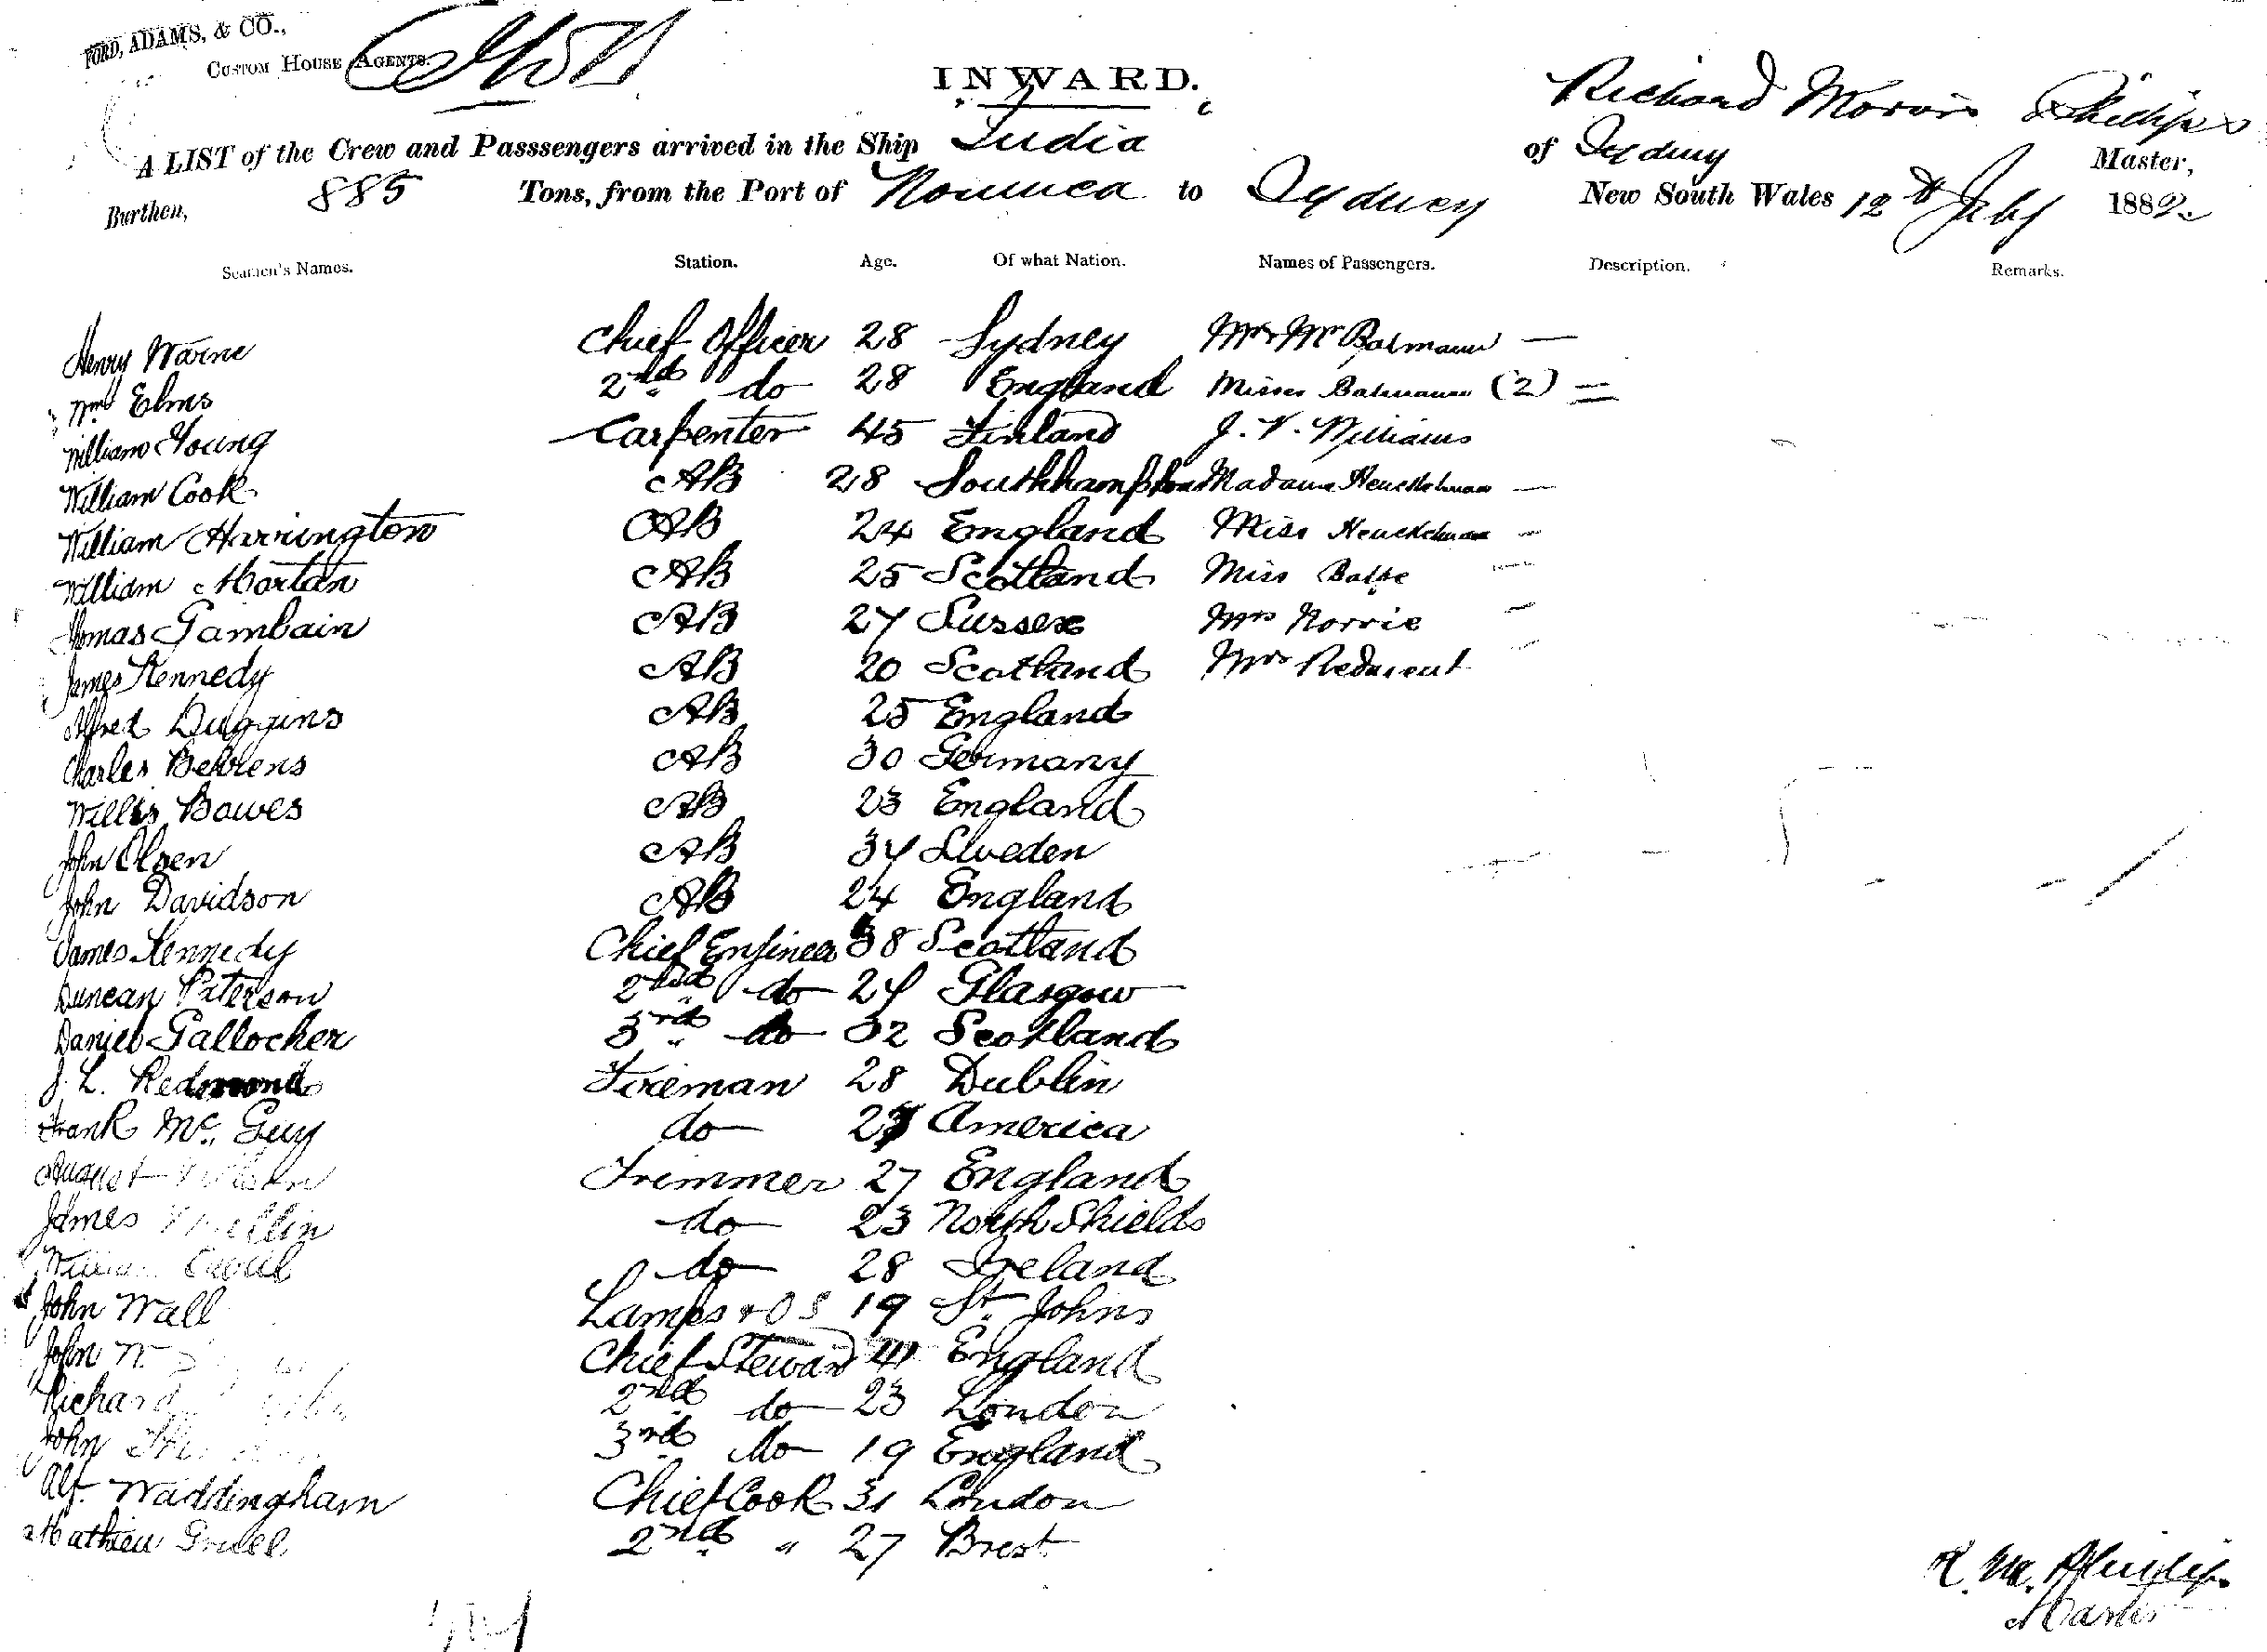 FORD, ADAMS, & CO.,
CUSTOM HOUSE AGENTS.
INWARD.
Richard Morris Phillips
A LIST of the Crew and Passsengers arrived in the Ship India of Sydney Master,
Burthen, 885 Tons, from the Port of Noumea to Sydney New South Wales 12th July 1882
Seamen's Names. Station. Age. Of what Nation. Names of Passengers. Description. Remarks.
Henry Warne Chief Officer 28 Sydney
Wm Elms 2nd do 28 England Misses (2)
William Young Carpenter 45 Finland J. V. Williams
William Cook AB 28 Southhampton Madame
William Harrington AB 24 England Miss
William Martin AB 25 Scotland Miss
Thomas Gambain AB 27 Sussex Mrs Norrie
James Kennedy AB 20 Scotland Mrs
Alfred Duggins AB 25 England
Charles Behrens AB 30 Germany
Willis Bowes AB 23 England
John Olsen AB 34 Sweden
John Davidson AB 24 England
James Kennedy Chief Engineer 38 Scotland
Duncan Paterson 2nd do Glasgow
Daniel Gallocher 3rd do 32 Scotland
J. L. Redmond Fireman 28 Dublin
Frank Mc. Guy do America
August Trimmer 27 England
James do 23 North Shields
William do 28 Ireland
John Wall Lamps & OS 19 St. Johns
John W. Chief Steward 41 England
Richard 2nd do 23 London
John 3rd do 19 England
Alf. Waddingham Chief Cook 31 London
Mathieu Gruel 2nd " 27 Brest
R. M. Phillips
Master